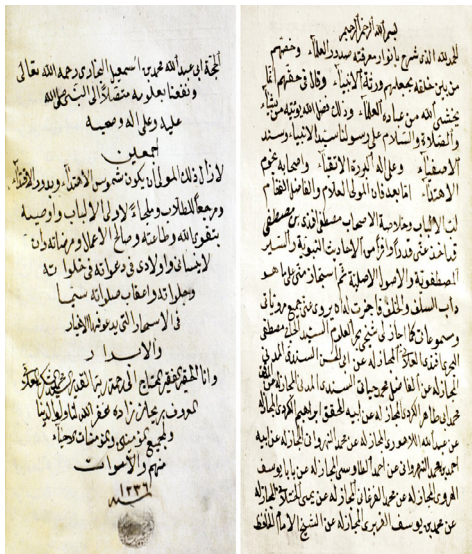 بسم الله الرحمن الرحيم
الحمد لله الذي شرح بانوار معرفته صدور العلماء وخصهم
من بين خلقه بجعلهم ورثة الانبياء وقال في حقهم انما
يخشى الله من عباده العلماء وذلك فضل الله يؤتيه من يشاء
والصلاة والسلام على رسولنا سيد الانبياء وسند
الاصفياء وعلى اله البررة الاتقياء واصحابه نجوم
الاهتداء اما بعد فان المولى العلام والفاضل الفهام
لب الالباب وخلاصة الاصحاب مصطفى افندي بن مصطفى
قد اخذ عني قدرا وافرا من الاحاديث النبوية والسير
المصطفوية والاصول الاصلية ثم استجاز مني على ما هو
داب السلف والخلف فاجزت له ان يروي عني جميع مروياتي
ومسموعاتي كما اجازني شيخي بحر العلوم السيد مصطفى
المجاز له عن ابي الحسن السندي المدني
المجاز له عن الفاضل محمد حيات السندي المدني المجاز له عن
ابي طاهر الكردي المجاز له عن ابيه المحقق ابراهيم الكردي المجاز له
عن عبد الله اللاهوري المجاز له عن محمد النهرواني المجاز له عن ابيه
احمد بن محمد النهرواني عن احمد الطاوسي المجاز له عن بابا يوسف
الهروي المجاز له عن محمد الفرغاني المجاز له عن يحيى المجاز له
عن محمد بن يوسف الفربري المجاز له عن الشيخ الامام الحافظ
الحجة ابي عبد الله محمد بن اسمعيل البخاري رحمه الله تعالى
ونفعنا بعلومه متصلا الى النبي صلى الله
عليه وعلى اله وصحبه
اجمعين
لا زال ذلك المولى ان يكون شموس الاهتداء وبدور الاقتداء
ومرجعا للطلاب وملجاء لاولي الالباب واوصيه
بتقوى الله وطاعته وصالح الاعمال ومرضاته وان
لا ينساني واولادي في دعواته في خلواته
وجلواته واعقاب صلواته سيما
في الاسحار التي يدعو فيه الاخيار
والابرار
وانا الحقير الفقير المحتاج الى رحمة ربه القدير
المعروف زاده غفر الله لنا ولوالدينا
ولجميع المؤمنين والمؤمنات الاحياء
منهم والاموات
سنة ١٢٣٦